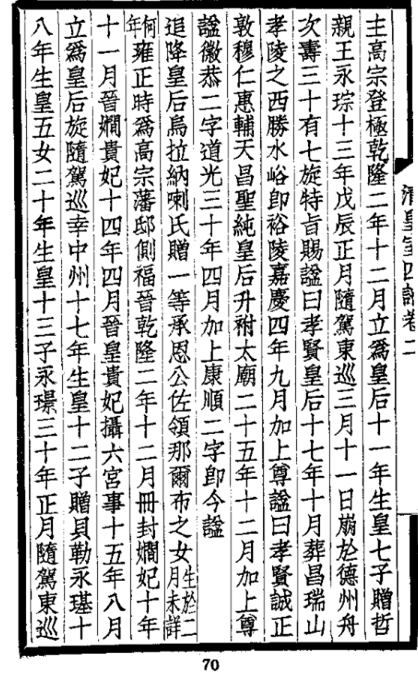 清皇室四譜卷二
主高宗登極乾隆二年十二月立為皇后十一年生皇七子贈哲
親王永琮十三年戊辰正月隨駕東巡三月十一日崩於德州舟
次壽三十有七旋特旨賜諡曰孝賢皇后十七年十月葬昌瑞山
孝陵之西勝水峪卽裕陵嘉慶四年九月加上尊諡曰孝賢誠正
敦穆仁惠輔天昌聖純皇后升祔太廟二十五年十二月加上尊
諡徽恭二字道光三十年四月加上康順二字卽今諡
追降皇后烏拉納喇氏贈一等承恩公佐領那爾布之女生於二月未詳
何年雍正時為高宗藩邸側福晉乾隆二年十二月冊封嫻妃十年
十一月晉嫻貴妃十四年四月晉皇貴妃攝六宮事十五年八月
立為皇后旋隨駕巡幸中州十七年生皇十二子贈貝勒永璂十
八年生皇五女二十年生皇十三子永璟三十年正月隨駕東巡
70